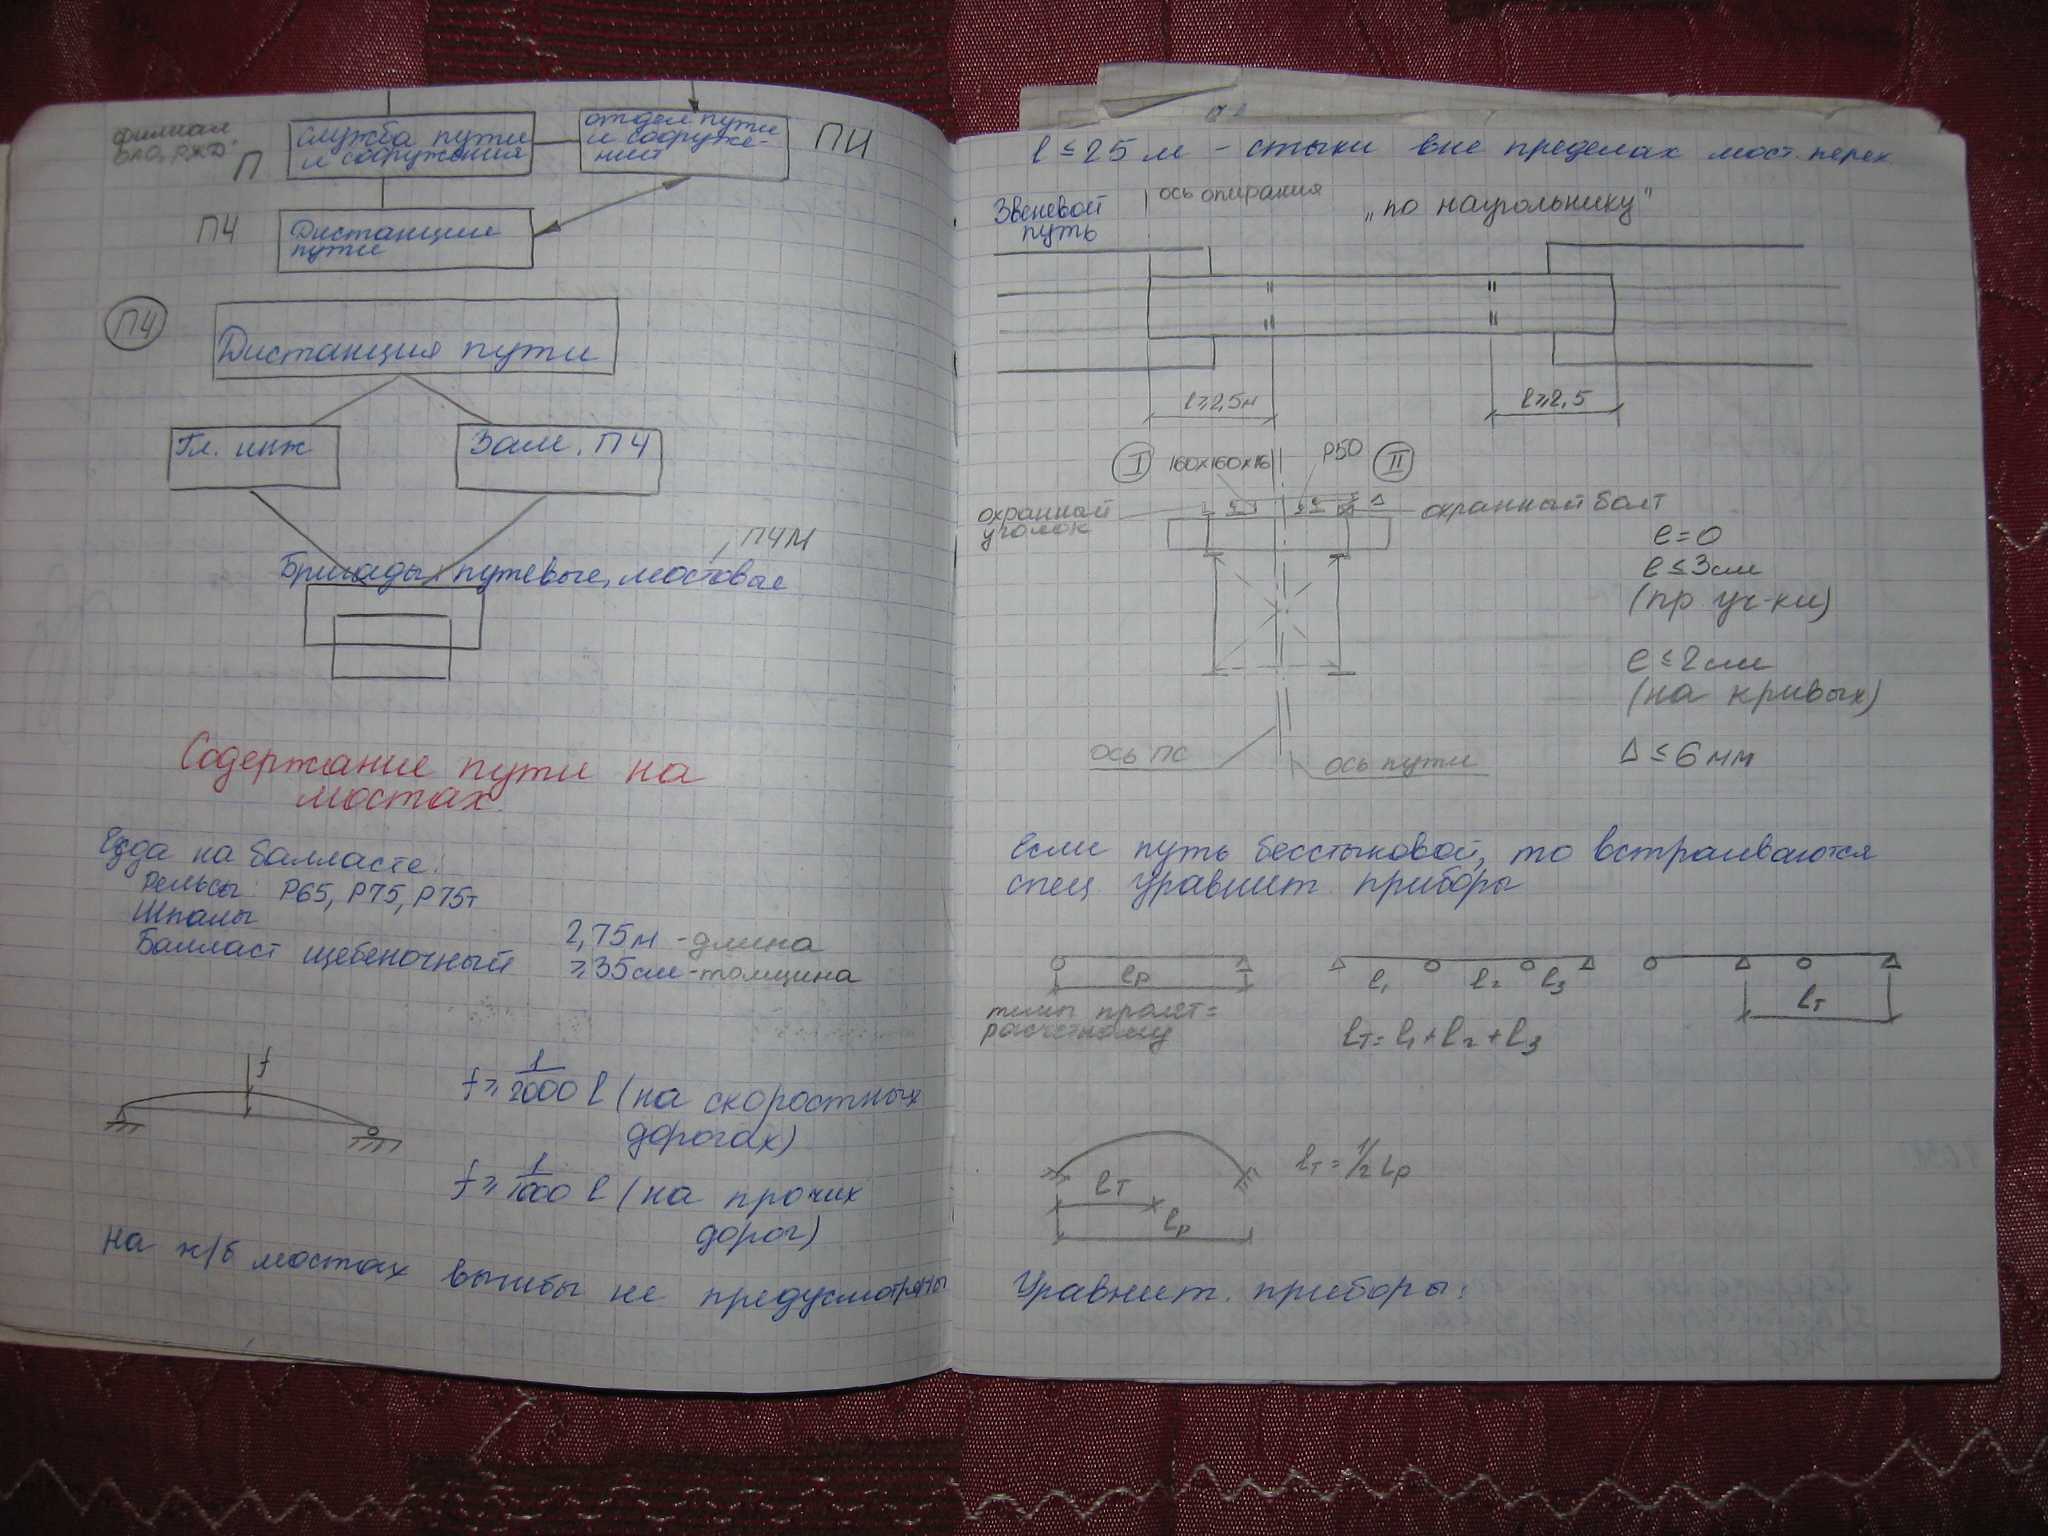 филиал
ОАО „РЖД"
П
служба пути
и сооружения
отдел пути
и сооруже-
ний
ПЧ
ПЧ
Дистанции
пути
ПЧ
Дистанция пути
Гл. инж
Зам. ПЧ
ПЧМ
Бригады: путевые, мостовые
Содержание пути на
мостах.
Езда на балласте:
Рельсы: Р65, Р75, Р75т
Шпалы
Балласт щебеночный
2,75м - длина
≥35см - толщина
f
f ≥ 1/2000 l (на скоростных
дорогах)
f ≥ 1/1000 l (на прочих
дорог)
На ж/б мостах выгибы не предусмотрены
l ≤ 25 м - стыки вне пределах мост. перех
Звеневой
путь
ось опирания
„по наугольнику"
l≥2,5м
l≥2,5
I
160х160х16
Р50
II
охранный
уголок
охранный болт
e=0
e≤3см
(пр уч-ки)
e≤2см
(на кривых)
ось ПС
ось пути
Δ≤6мм
Если путь бесстыковой, то встраиваются
спец. уравнит. приборы
lр
l1
l2
l3
lт
темп пролёт =
расчетному
lт = l1 + l2 + l3
lт
lр
lт = 1/2 lр
Уравнит. приборы: